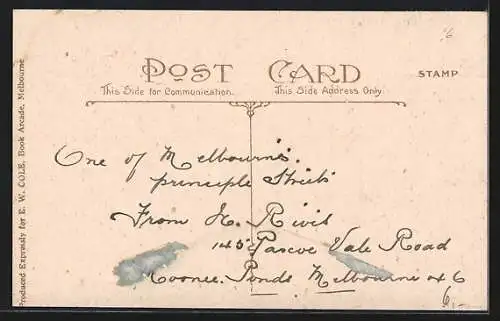 POST CARD
This Side for Communication.
This Side Address Only.
STAMP
Produced Expressly for E. W. COLE, Book Arcade, Melbourne
One of Melbourne's.
principle Streets
From H. Rivis
145 Pascoe Vale Road
Moonee. Ponds Melbourne
6